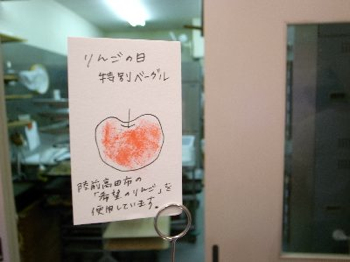 りんごの日
特別ベーグル
陸前高田市の
「希望のりんご」を
使用しています。